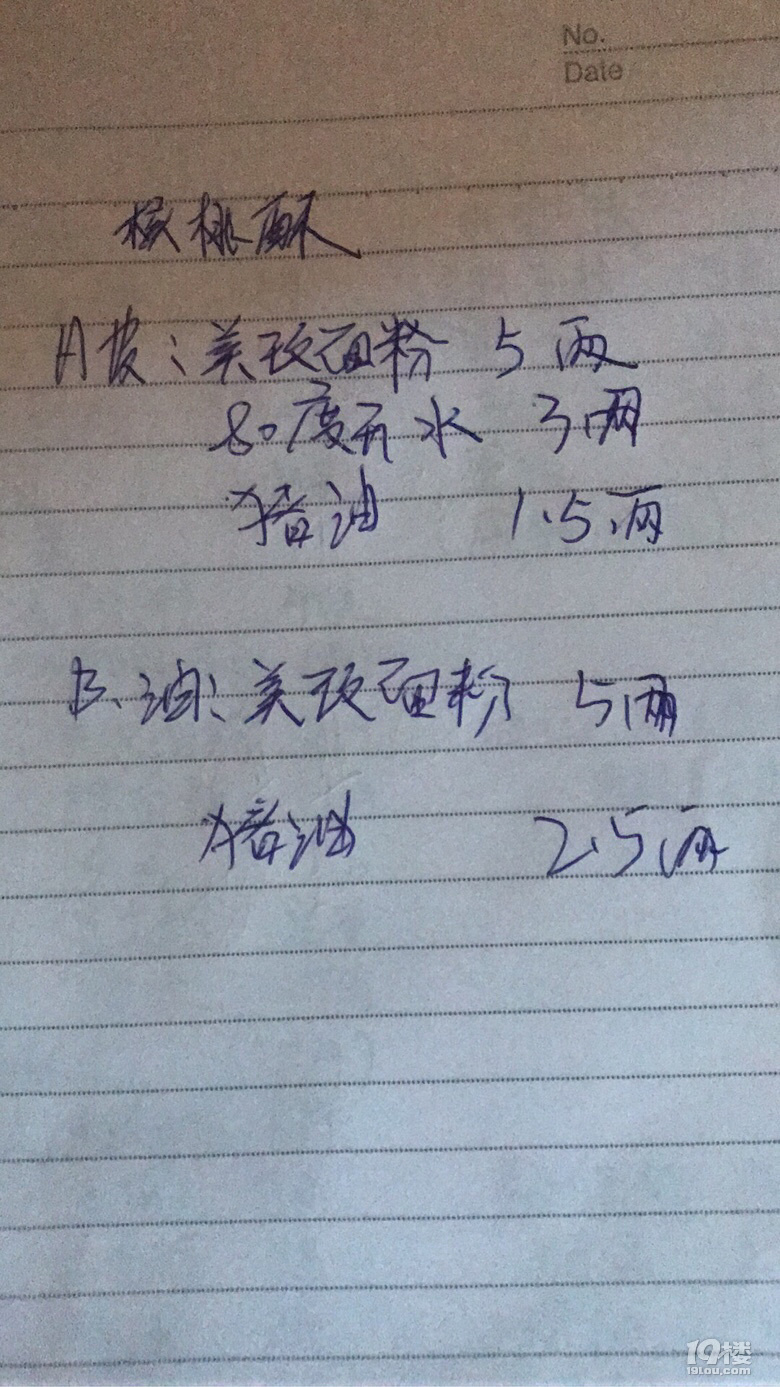 No.
Date
核桃酥
A皮：美玫面粉 5两
80度开水 3两
猪油 1.5两
B、油：美玫面粉 5两
猪油 2.5两
19楼
19lou.com